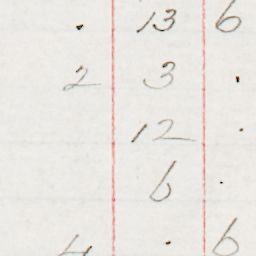 . 13 6
2 3 .
12 .
6 .
4 . 6